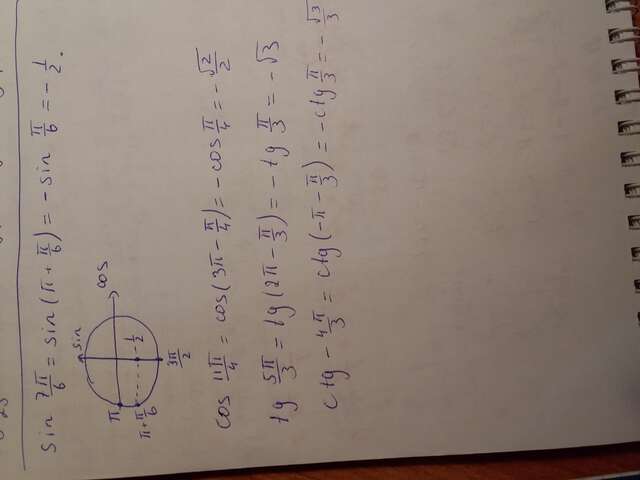 sin 7π/6 = sin(π + π/6) = -sin π/6 = - 1/2.
sin
cos
π
π+π/6
-1/2
3π/2
cos 11π/4 = cos(3π - π/4) = -cos π/4 = - √2/2
tg 5π/3 = tg(2π - π/3) = -tg π/3 = -√3
ctg - 4π/3 = ctg(-π - π/3) = -ctg π/3 = - √3/3